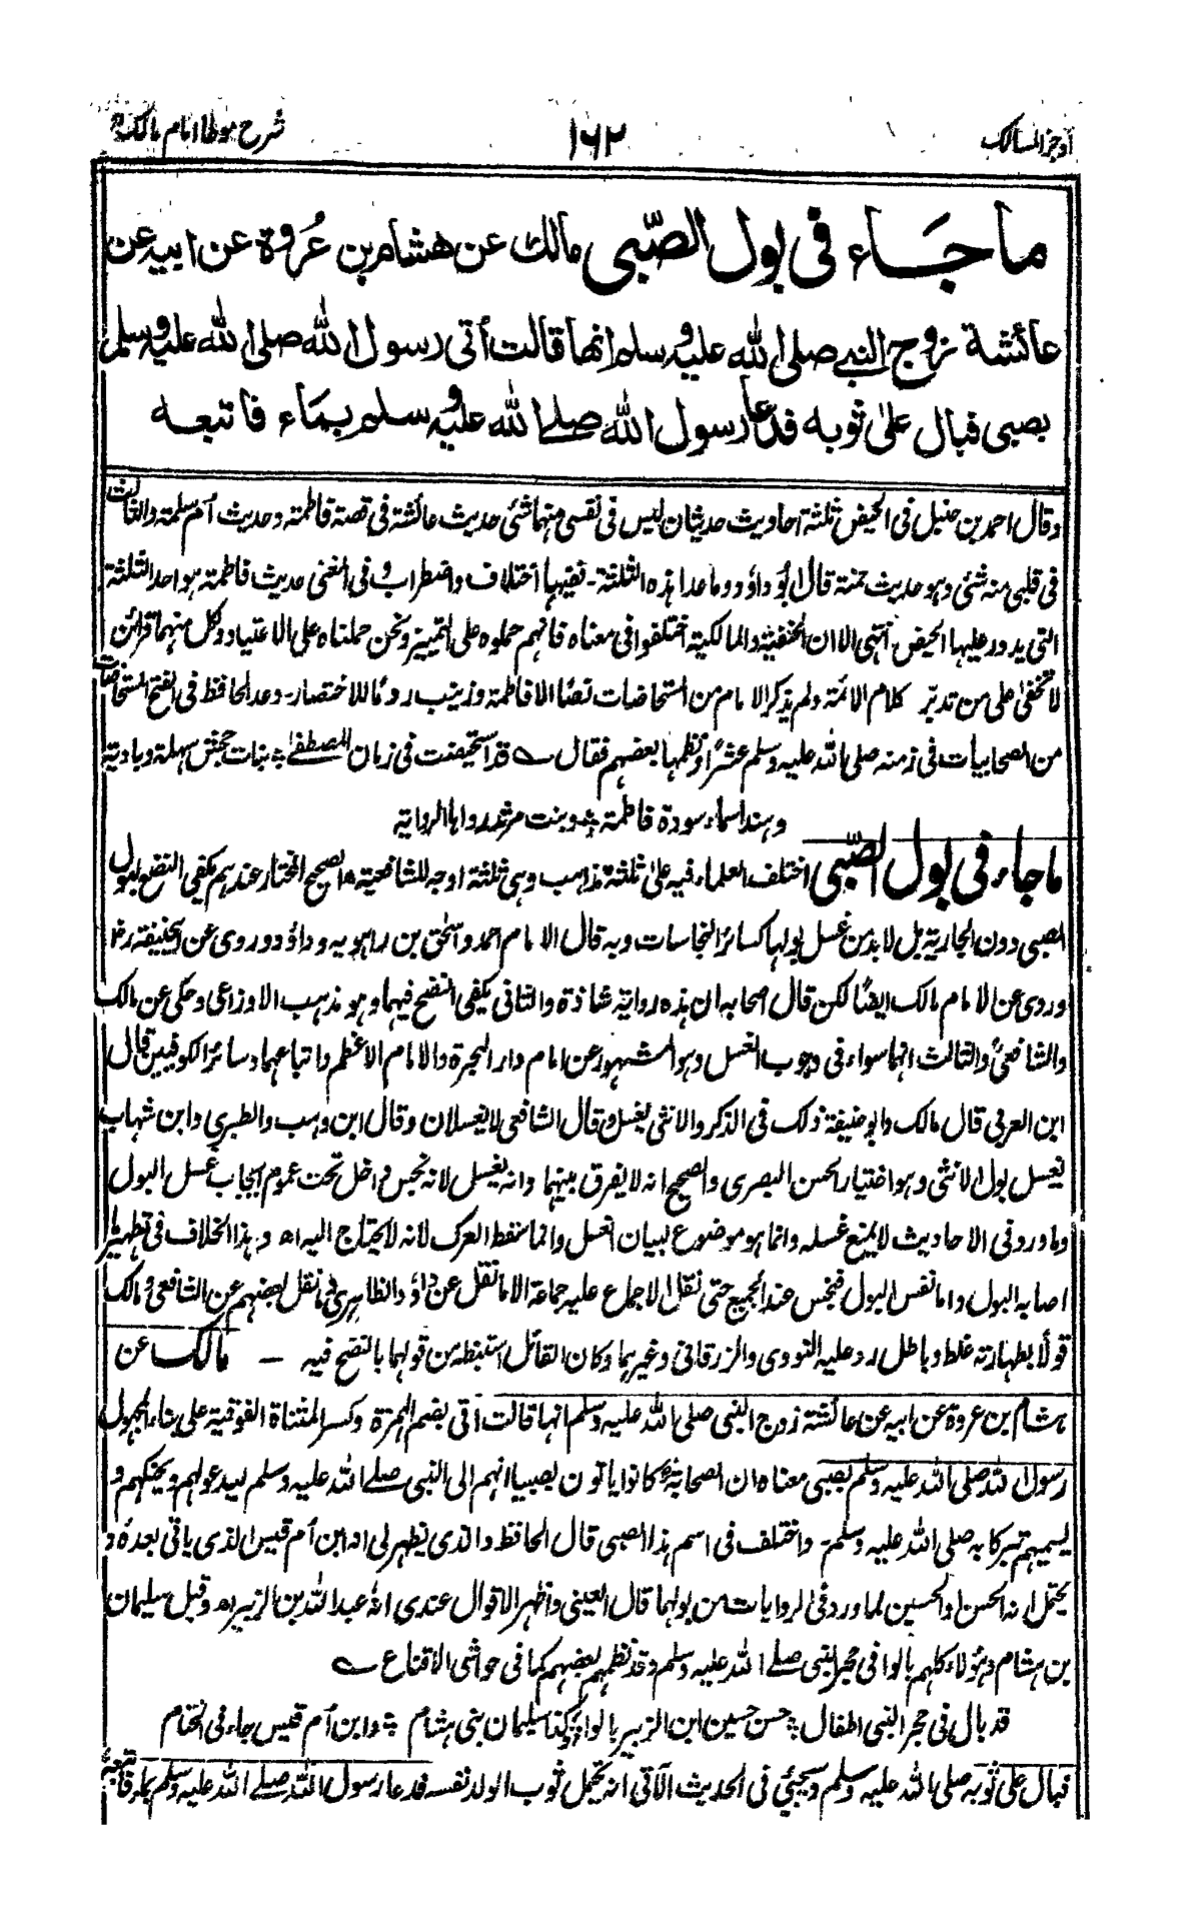 أوجز المسالك
١٦٢
شرح موطا امام مالك
ما جَاء في بول الصّبي مالك عن هشام بن عُروة عن ابيه عن
عائشة زوج النبي صلى الله عليه وسلم انها قالت أتى رسول الله صلى الله عليه وسلم
بصبي فبال على ثوبه فدعا رسول الله صلى الله عليه وسلم بماء فاتبعه
وقال احمد بن حنبل في الحيض ثلثة احاديث حديثان ليس في نفسي منهما شئ حديث عائشة في قصة فاطمة وحديث أم سلمة والثالث
في قلبي منه شئ وهو حديث حمنة قال ابو داؤد وما عدا هذه الثلثة ففيها اختلاف واضطراب وفي المغني حديث فاطمة هو احد الثلثة
التي يدور عليها الحيض انتهى الا ان الحنفية والمالكية اختلفوا في معناه فانهم حملوه على التمييز ونحن حملناه على الاعتياد ولكل منهما قرائن
لا تخفى على من تدبر كلام الائمة ولم يذكر الامام من استحاضات نصًا الا فاطمة وزينب رومًا للاختصار وعد الحافظ في الفتح المستحاضات
من الصحابيات في زمنه صلى الله عليه وسلم عشرًا ونظمها بعضهم فقال قد استحيضت في زمان المصطفى ؛ بنات جحش سهلة وبادية
وهند اسماء سودة فاطمة ؛ وبنت مرثد رواها الرواية
ما جاء في بول الصّبي اختلف العلماء فيه على ثلثة مذاهب وهي ثلثة اوجه للشافعية الصحيح المختار عندهم يكفي النضح لبول
الصبي دون الجارية بل لابد من غسل بولها كسائر النجاسات وبه قال الامام احمد واسحق بن راهويه وداؤد وروي عن ابي حنيفة رض
وروي عن الامام مالك ايضًا لكن قال اصحابه ان هذه رواية شاذة والثاني يكفي النضح فيهما وهو مذهب الاوزاعي وحكي عن مالك
والشافعي والثالث انهما سواء في وجوب الغسل وهو المشهور عن امام دار الهجرة والامام الاعظم واتباعهما وسائر الكوفيين قال
ابن العربي قال مالك وابو حنيفة ذلك في الذكر والانثى يغسل وقال الشافعي لا يغسلان وقال ابن وهب والطبري وابن شهاب
يغسل بول الانثى وهو اختيار الحسن البصري والصحيح انه لا يفرق بينهما وانه يغسل لانه نجس داخل تحت عموم ايجاب غسل البول
وما ورد في الاحاديث لا يمنع غسله وانما هو موضوع لبيان الغسل وانما سقط العرك لانه لا يحتاج اليه اه وهذا الخلاف في تطهير ما
اصابه البول واما نفس البول فنجس عند الجميع حتى نقل الاجماع عليه جماعة الا ما نقل عن داؤد الظاهري وما نقل بعضهم عن الشافعي ومالك
قولًا بطهارته غلط وباطل رد عليه النووي والزرقاني وغيرهما وكان القائل استنبطه من قولهما بالنضح فيه - مالك عن
هشام بن عروة عن ابيه عن عائشة زوج النبي صلى الله عليه وسلم انها قالت أتي بضم الهمزة وكسر المثناة الفوقية على بناء المجهول
رسول الله صلى الله عليه وسلم بصبي معناه ان الصحابة رض كانوا ياتون بصبيانهم الى النبي صلى الله عليه وسلم ليدعو لهم ويحنكهم و
يسميهم تبركا به صلى الله عليه وسلم واختلف في اسم هذا الصبي قال الحافظ والذي يظهر لي انه ابن أم قيس الذي ياتي بعده و
يحتمل انه الحسن او الحسين لما ورد في الروايات من بولهما قال العيني واظهر الاقوال عندي انه عبد الله بن الزبير اه وقيل سليمان
بن هشام وهؤلاء كلهم بالوا في حجر النبي صلى الله عليه وسلم وقد نظمهم بعضهم كما في حواشي الاقناع
قد بال في حجر النبي اطفال ؛ حسن حسين ابن الزبير بالوا ؛ كذا سليمان بني هشام ؛ وابن أم قيس جاء في الختام
فبال على ثوبه صلى الله عليه وسلم وسيجيئ في الحديث الآتي انه يحتمل ثوب الولد نفسه فدعا رسول الله صلى الله عليه وسلم بماء فاتبعه